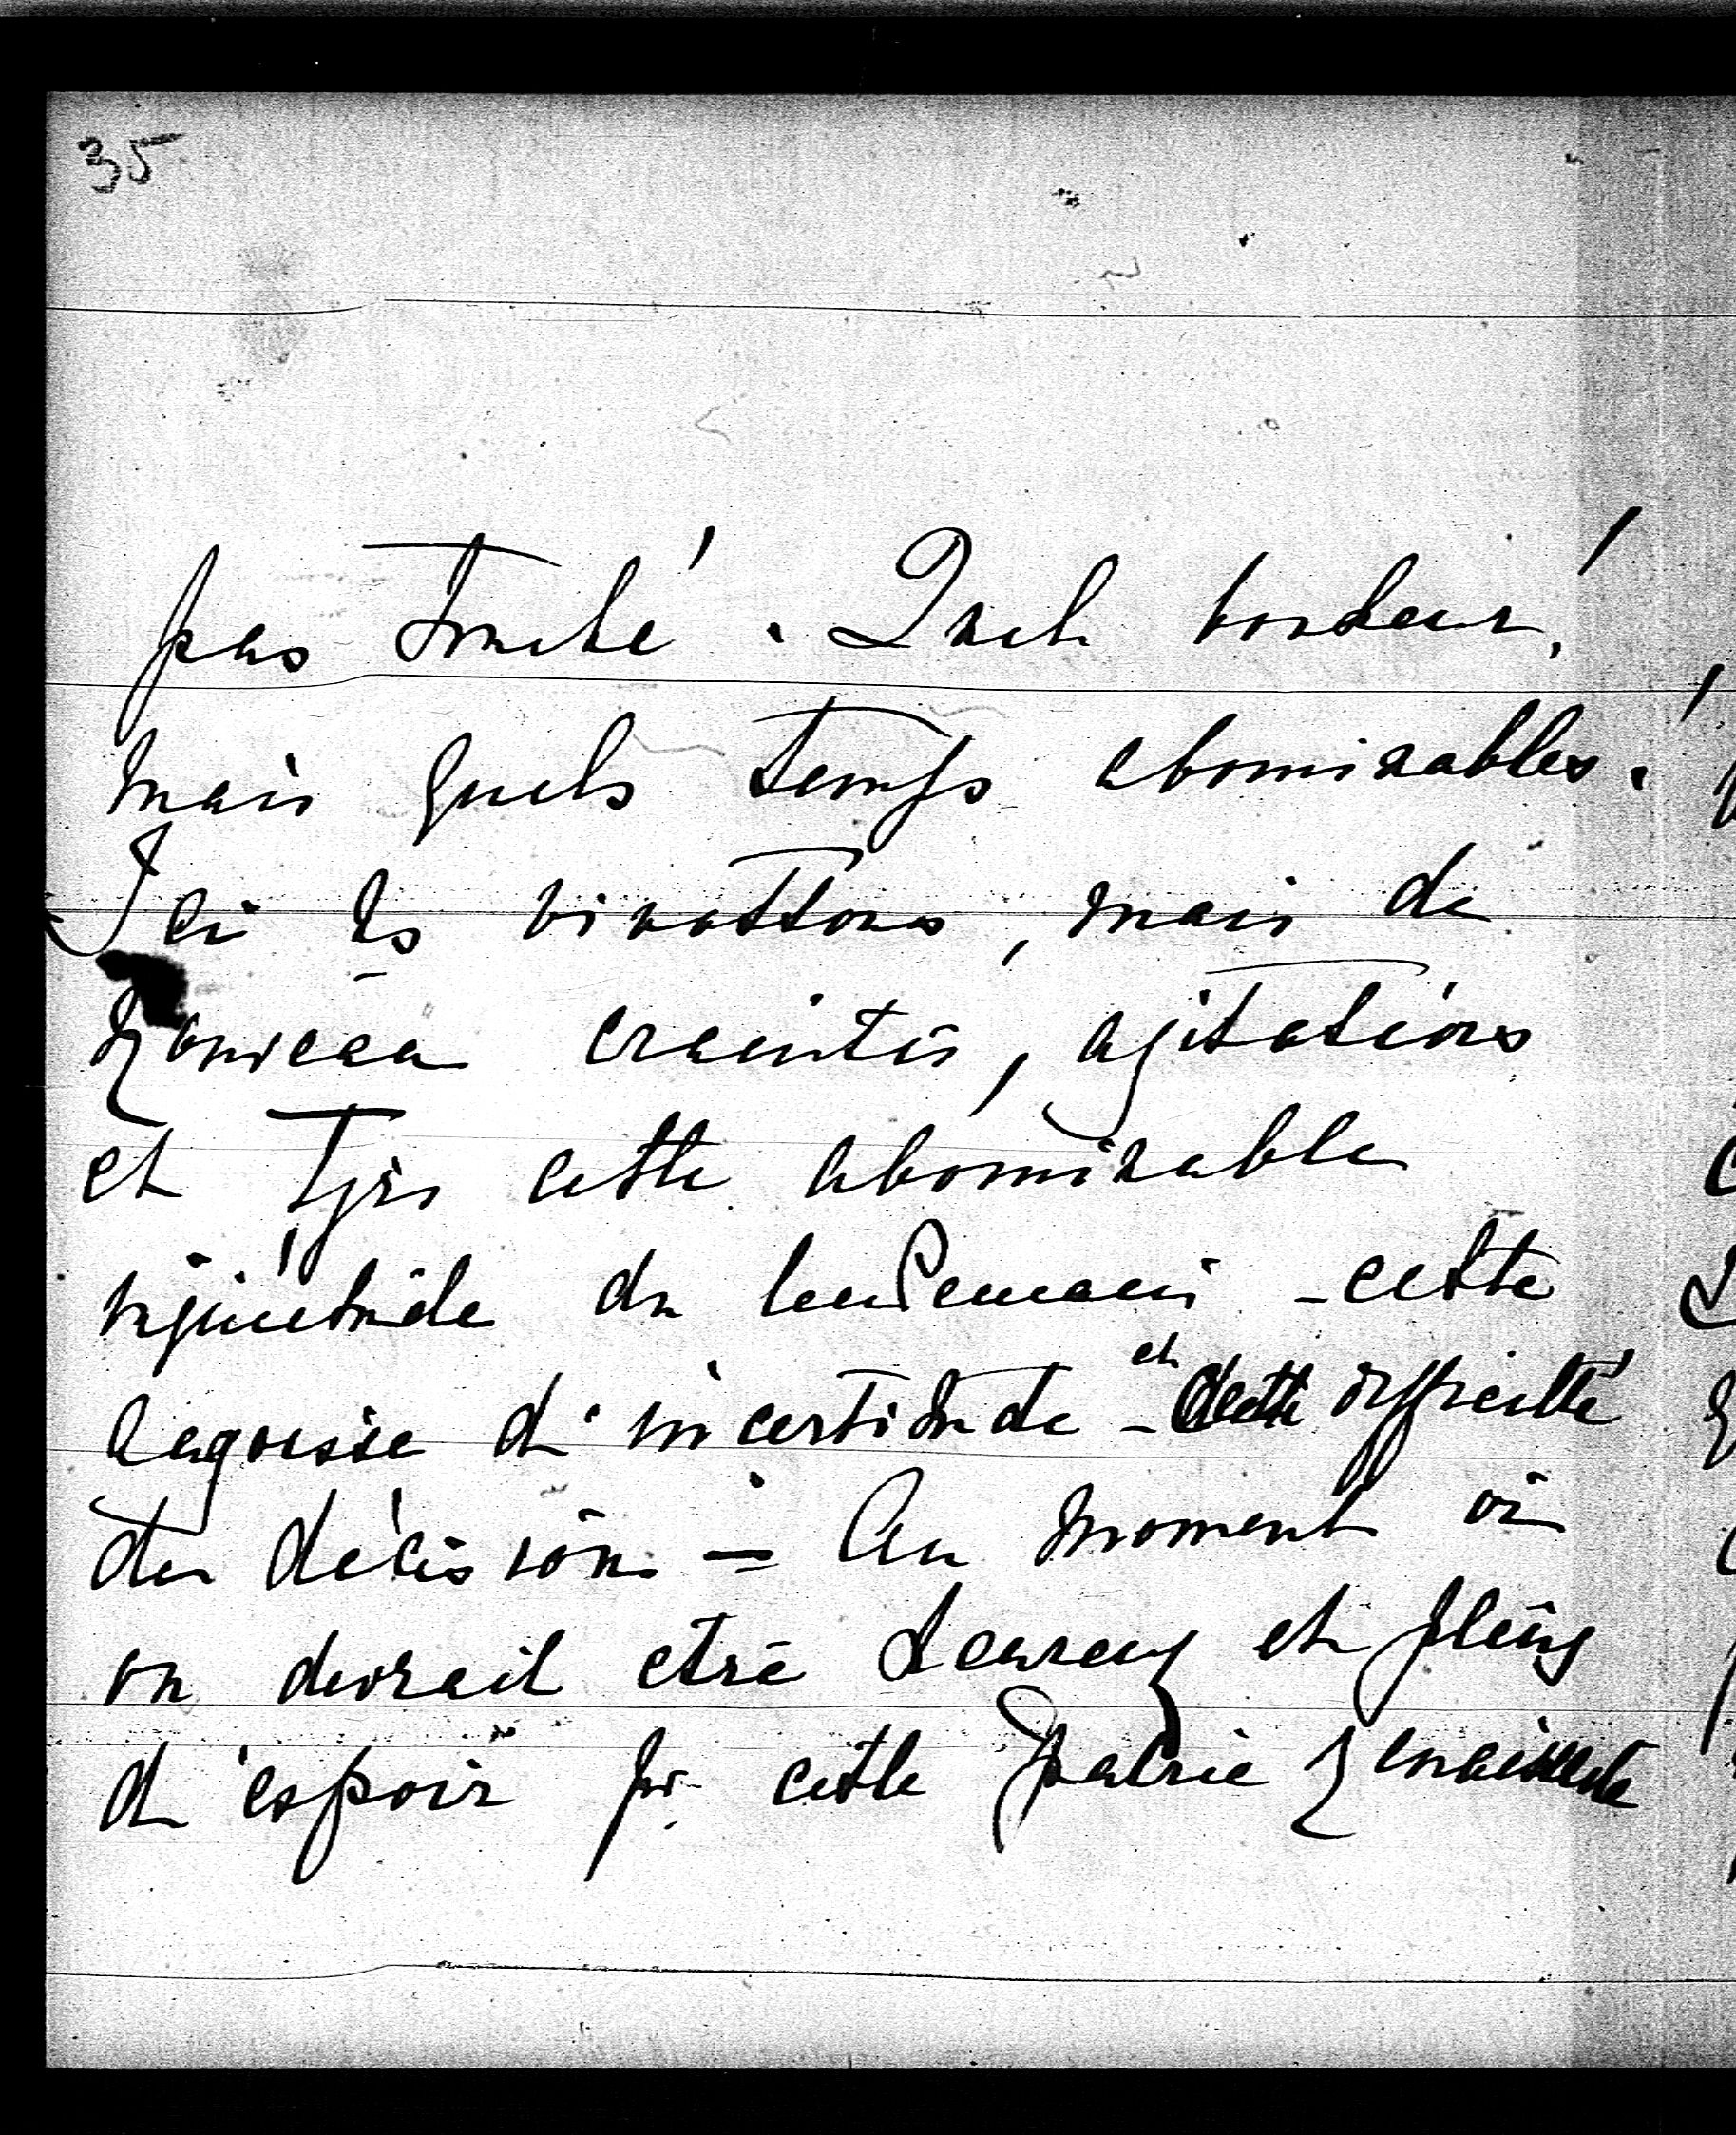 35
pas touché. Quel bonheur!
mais quels temps abominables!
Ici ns vivottons, mais de
nouveau craintes, agitations
et tjrs cette abominable
inquiétude du lendemain - cette
angoisse d'incertitude - et cette difficulté
des décisions = Au moment où
on devrait être heureux et pleins
d'espoir pr cette patrie renaissante